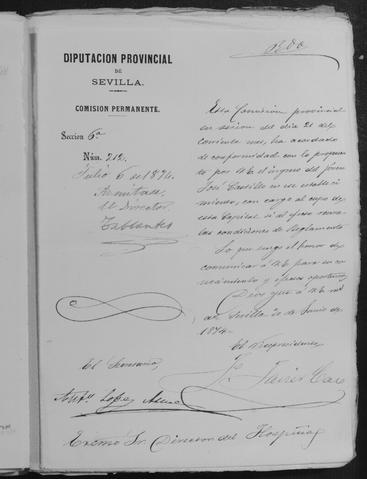 DIPUTACION PROVINCIAL
DE
SEVILLA.
COMISION PERMANENTE.
Seccion 6ª
Núm. 212.
Julio 6 de 1874.
El Director
Esta Comision provincial
en sesion del dia 21 del
corriente mes, ha acordado
de conformidad con lo propues
to por V.E. el ingreso del jóven
José Castillo en ese estableci
miento, con cargo al cupo de
esta Capital si el reune
las condiciones de Reglamento
Lo que tengo el honor de
comunicar á V.E. para su co
nocimiento y efectos oportunos
Dios gue á V.E. ms
as Sevilla 30 de Junio de
1874.
El Vicepresidente
El Secretario,
Antº Lopez
Excmo Sr. Director del Hospicio